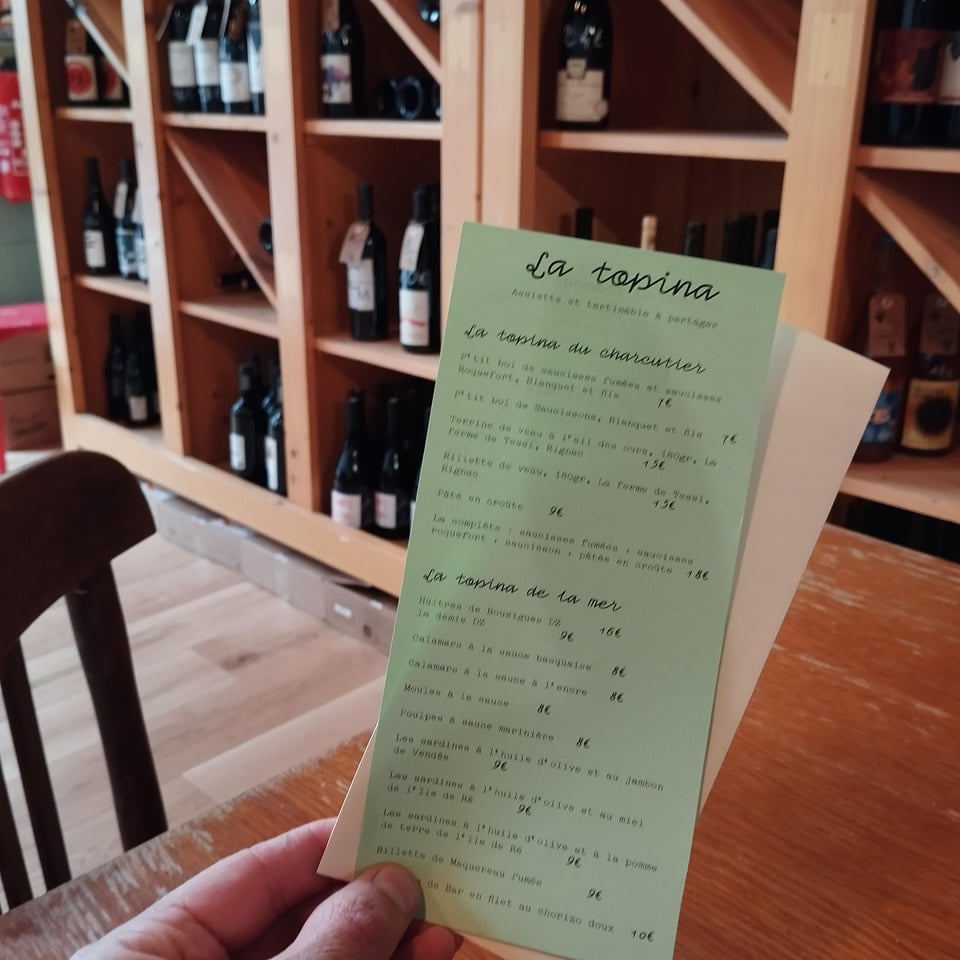 La topina
Assiette et tartinable à partager
La topina du charcutier
P'tit bol de saucisses fumées et saucisses
Roquefort, Blanquet et fils 7€
P'tit bol de Saucissons, Blanquet et fils 7€
Terrine de veau à l'ail des ours, 180gr, La
ferme de Tessi, Rignac 15€
Rillette de veau, 180gr, La ferme de Tessi,
Rignac 15€
Pâté en croûte 9€
La complète : saucisses fumées ; saucisses
roquefort ; saucisson ; pâtés en croûte 18€
La topina de la mer
Huîtres de Bouzigues DZ 16€
la demie DZ 9€
Calamars à la sauce basquaise 8€
Calamars à la sauce à l'encre 8€
Moules à la sauce 8€
Poulpes à sauce marinière 8€
Les sardines à l'huile d'olive et au jambon
de Vendée 9€
Les sardines à l'huile d'olive et au miel
de l'île de Ré 9€
Les sardines à l'huile d'olive et à la pomme
de terre de l'île de Ré 9€
Rillette de Maquereau fumée 9€
de Bar en filet au chorizo doux 10€